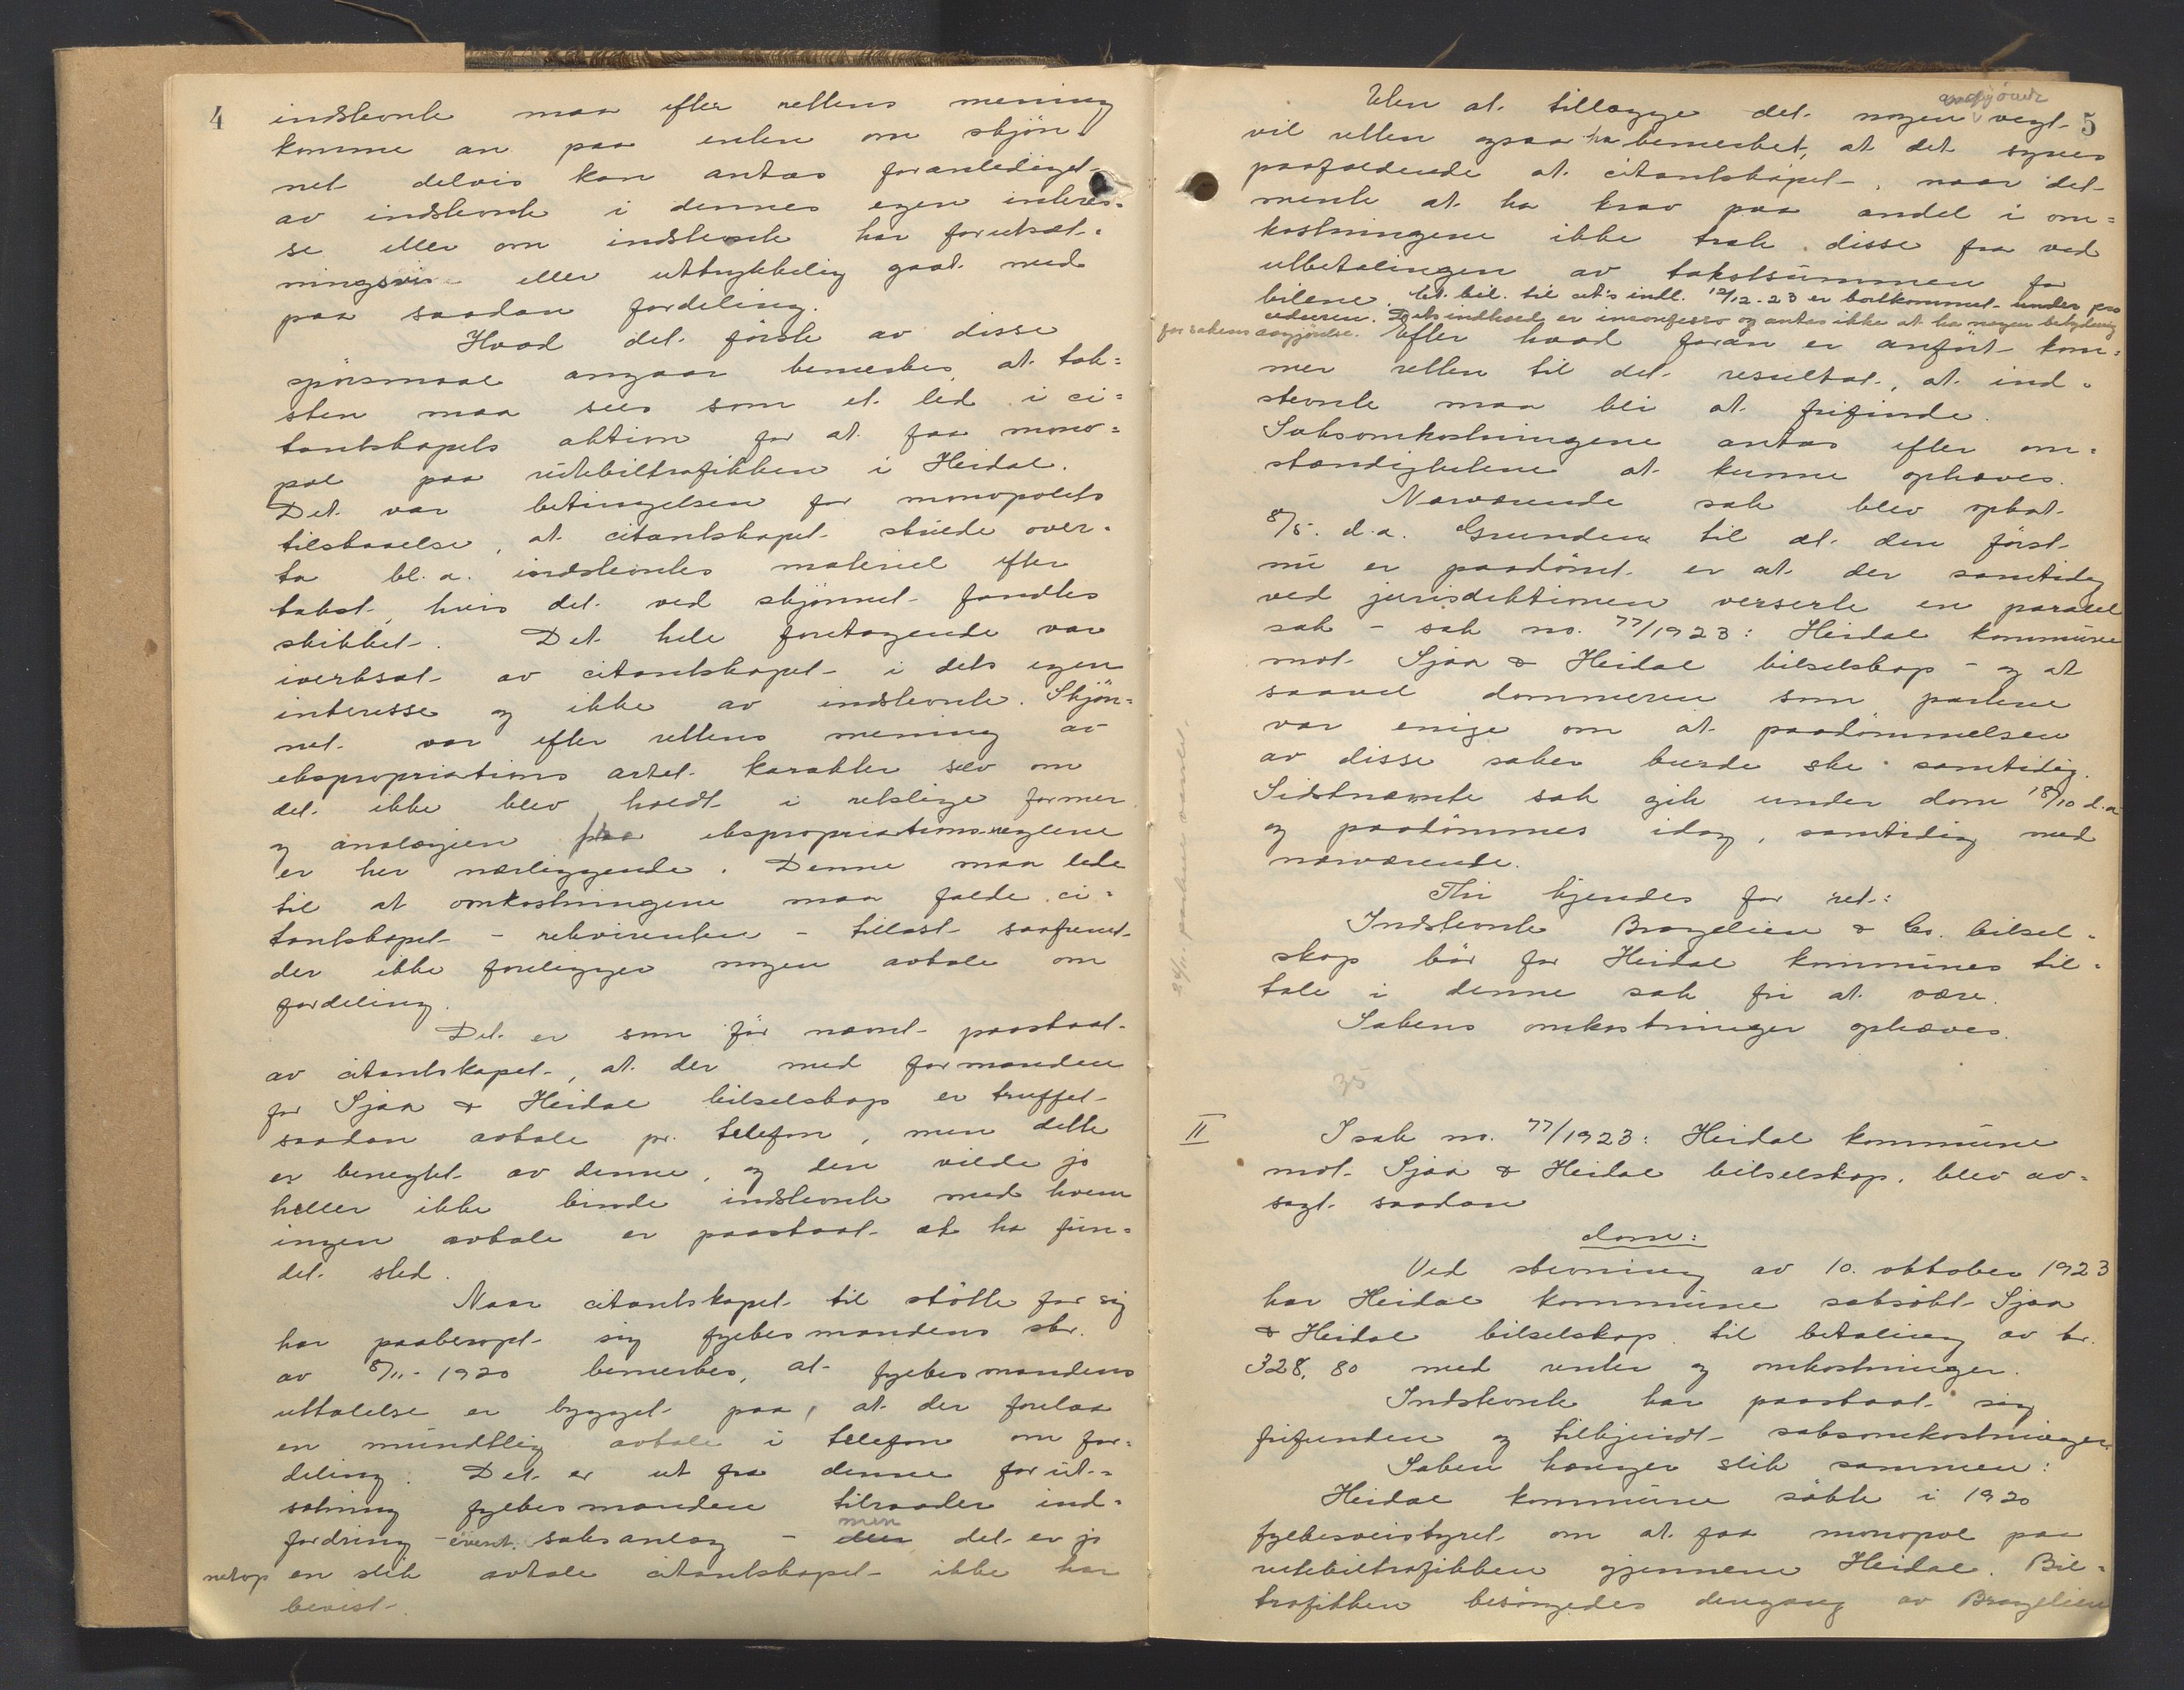 4
indstevnte maa efter rettens mening
komme an paa enten om skjön-
net delvis kan antas foranlediget
av indstevnte i dennes egen interes=
se eller om indstevnte har forutsæt=
ningsvis eller uttrykkelig gaat med
paa saadan fordeling.
Hvad det første av disse
spörsmaal angaar bemerkes at tak=
sten maa sees som et led i ci=
tantskapets aktion for at faa mono=
pol paa rutebiltrafikken i Heidal.
Det var betingelsen for monopolets
tilstaaelse, at citantskapet skulde over=
ta bl.a. indstevntes materiel efter
takst, hvis det ved skjönnet fandtes
skikket. Det hele foretagende var
iverksat av citantskapet i dets egen
interesse og ikke av indstevnte. Skjön=
net var efter rettens mening av
ekspropriations artet karakter selv om
det ikke blev holdt i retslige former
og analogien fra ekspropriationsreglene
er her nærliggende. Denne maa lede
til at omkostningene maa falde ci=
tantskapet - rekvirenten - tillast saafremt
der ikke foreligger nogen avtale om
fordeling.
Det er som för nævnt paastaat
av citantskapet, at der med formanden
for Sjoa & Heidal bilselskap er truffet
saadan avtale pr. telefon, men dette
er benegtet av denne, og den vilde jo
heller ikke binde indstevnte med hvem
ingen avtale er paastaat at ha fun=
det sted.
Naar citantskapet til stötte for sig
har paaberopt sig fylkesmandens skr.
av 8/11-1920 bemerkes, at fylkesmandens
uttalelse er bygget paa, at der forelaa
en mundtlig avtale i telefon om for=
deling. Det er ut fra denne forut=
sætning fylkesmanden tilraader ind=
men
fordring - event. saksanlæg - den det er jo
netop en slik avtale citantskapet ikke har
bevist.
5
avgjörende
Uten at tillægge det nogen vegt
vil retten ogsaa ha bemerket, at det synes
paafaldende at citantskapet, naar det
mente at ha krav paa andel i om=
kostningene ikke trak disse fra ved
utbetalingen av takstsummen for
bilene. Et bil. til cit's indl. 12/12-23 er bortkommet under pro
ceduren. Dets indhold er inconfesso og antas ikke at ha nogen betydning
for sakens avgjörelse. Efter hvad foran er anfört kom=
mer retten til det resultat, at ind=
stevnte maa bli at frifinde.
Saksomkostningene antas efter om=
stændighetene at kunne ophæves.
Nærværende sak blev optat
8/5. d.a. Grunden til at den först
nu er paadömt er at der samtidig
ved jurisdiktionen verserte en paralel
sak - sak no. 77/1923: Heidal kommune
mot Sjoa & Heidal bilselskap - og at
saavel dommeren som partene
var enige om at paadömmelsen
av disse saker burde ske samtidig.
Sidstnævnte sak gik under dom 18/10 d.a
og paadömmes idag, samtidig med
nærværende.
Thi kjendes for ret:
Indstevnte Bragelien & Co. bilsel=
skap bör for Heidal kommunes til=
tale i denne sak fri at være.
Sakens omkostninger ophæves.
35
II
I sak no. 77/1923: Heidal kommune
mot Sjoa & Heidal bilselskap, blev av=
sagt saadan
dom:
Ved stevning av 10. oktober 1923
har Heidal kommune saksökt Sjoa
& Heidal bilselskap til betaling av kr.
328,80 med renter og omkostninger.
Indstevnte har paastaat sig
frifunden og tilkjendt saksomkostninger.
Saken hænger slik sammen:
Heidal kommune sökte i 1920
fylkesveistyret om at faa monopol paa
rutebiltrafikken gjennem Heidal. Bil=
trafikken besörgedes dengang av Bragelien
24/11. partene varslet.